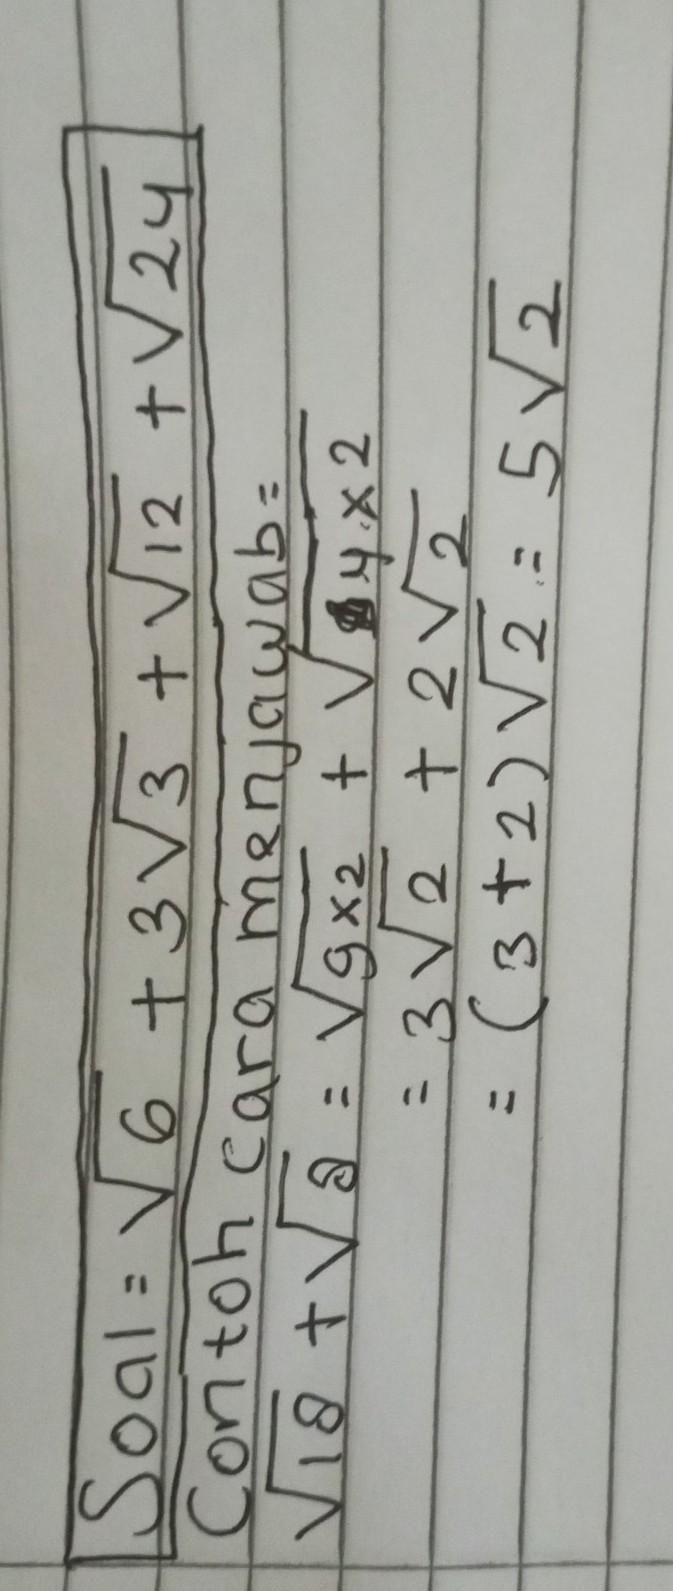 Soal = √6 + 3√3 + √12 + √24
Contoh cara menjawab =
√18 + √8 = √9x2 + √4x2
= 3√2 + 2√2
= (3+2)√2 = 5√2